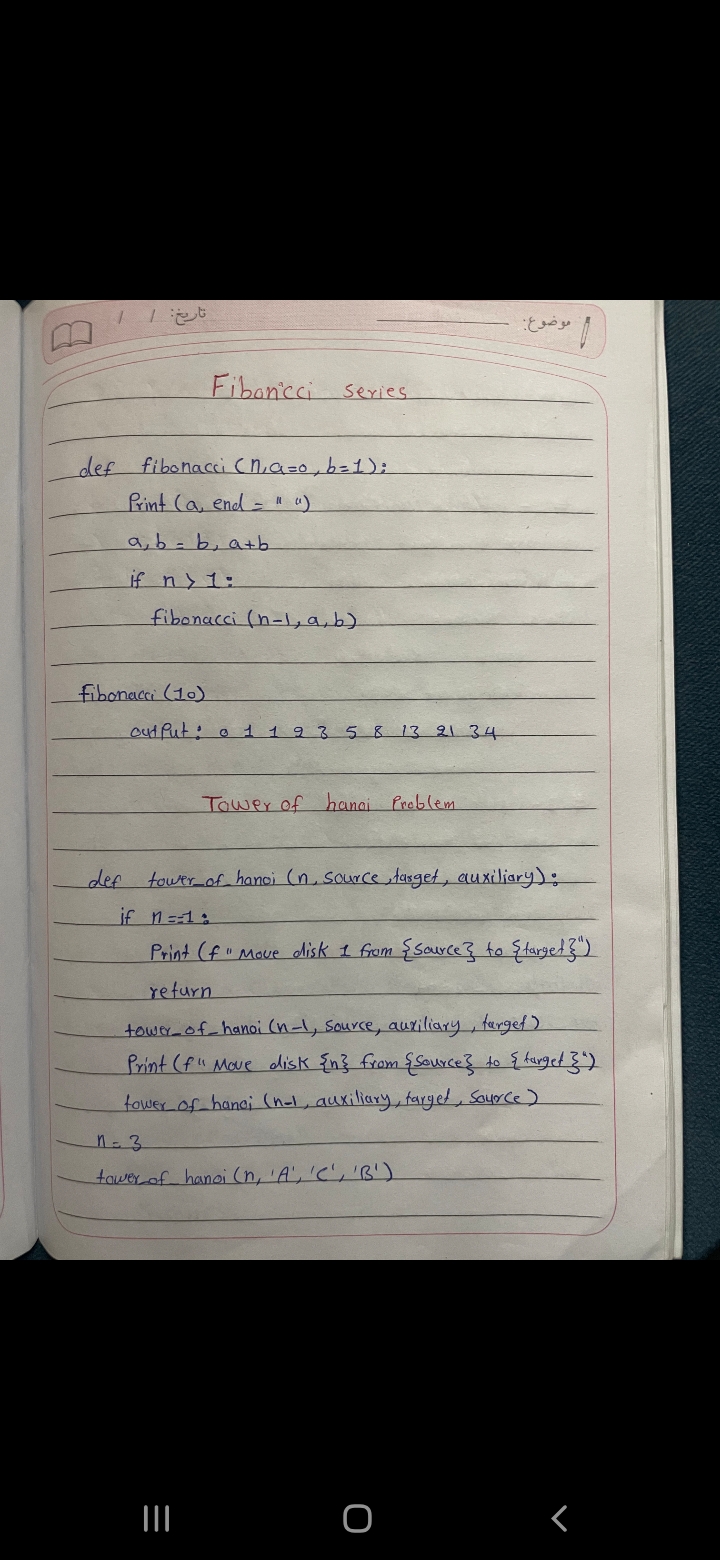 موضوع: تاريخ: / /
Fibonacci series
def fibonacci (n,a=0, b=1):
Print (a, end = " ")
a, b = b, a+b
if n > 1:
fibonacci (n-1, a, b)
fibonacci (10)
output: 0 1 1 2 3 5 8 13 21 34
Tower of hanoi Problem
def tower_of_hanoi (n, source, target, auxiliary):
if n==1:
Print (f " Move disk 1 from {source} to {target}")
return
tower_of_hanoi (n-1, source, auxiliary, target)
Print (f" Move disk {n} from {source} to {target}")
tower_of_hanoi (n-1, auxiliary, target, source)
n = 3
tower_of_hanoi (n, 'A', 'C', 'B')